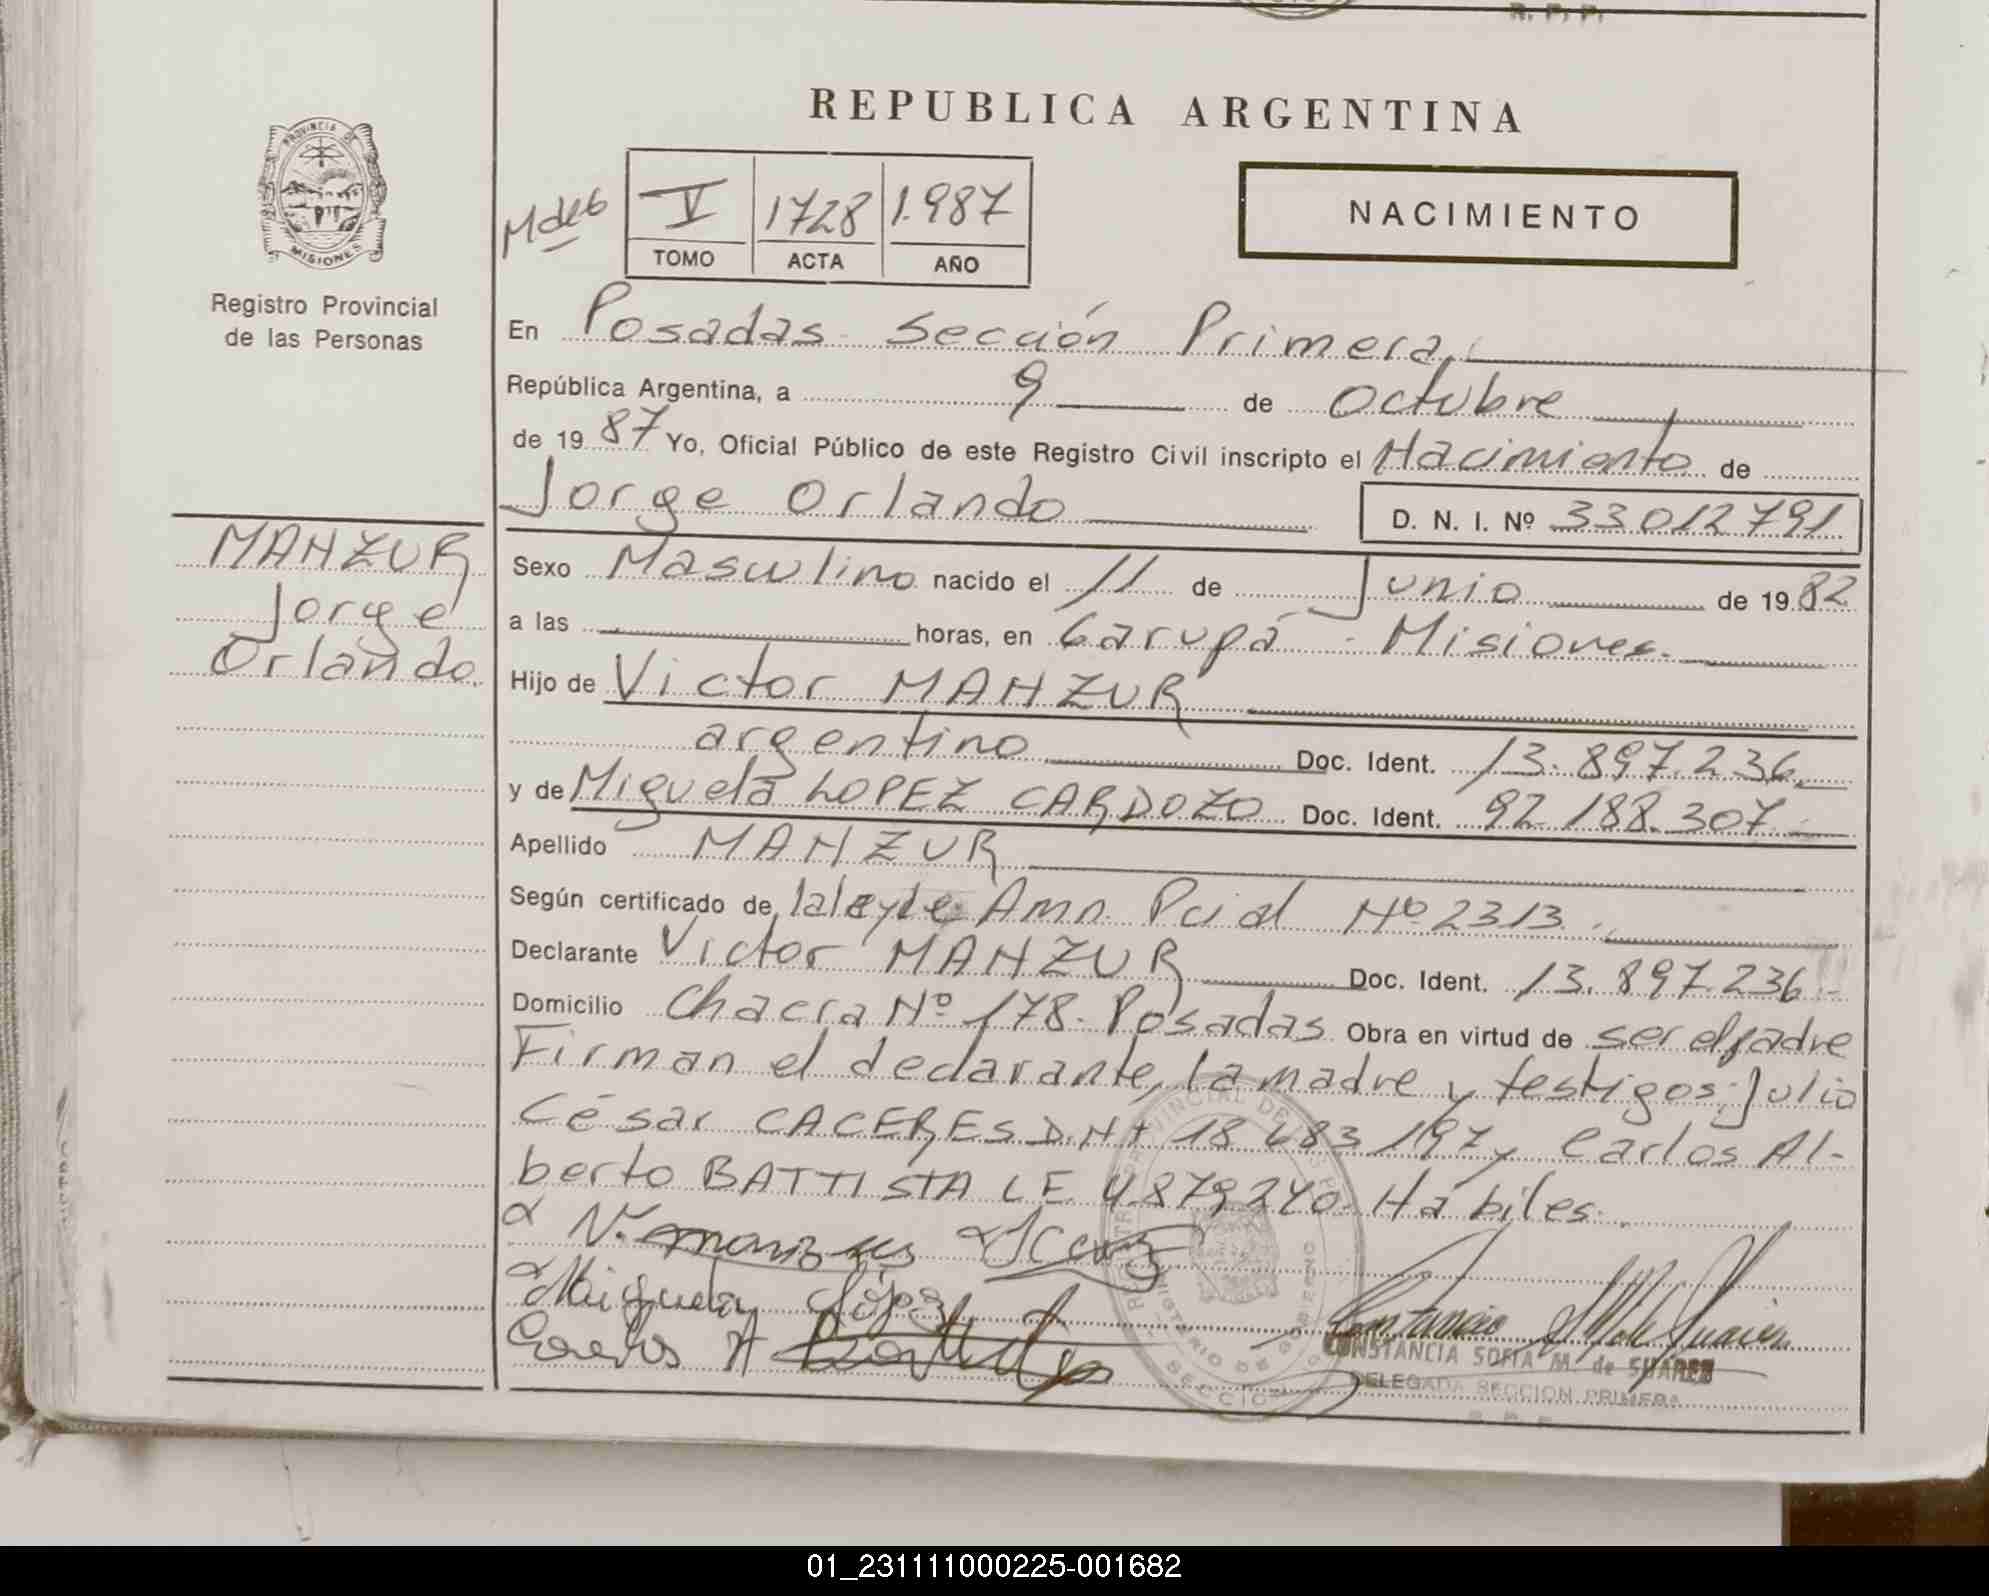 R. P. P.
REPUBLICA ARGENTINA
PROVINCIA DE
MISIONES
Registro Provincial
de las Personas
V 1728 1.987
TOMO ACTA AÑO
NACIMIENTO
En Posadas - Sección Primera,
República Argentina, a 9 de Octubre
de 19 87 Yo, Oficial Público de este Registro Civil inscripto el Nacimiento de
Jorge Orlando D. N. I. Nº 33012791
MANZUR
Jorge
Orlando.
Sexo Masculino nacido el 11 de Junio de 19 82
a las horas, en Garupá - Misiones.
Hijo de Victor MANZUR
argentino Doc. Ident. 13.897.236
y de Miguela LOPEZ CARDOZO Doc. Ident. 92.188.307
Apellido MANZUR
Según certificado de la ley de Amn. Pcial Nº 2313.
Declarante Victor MANZUR Doc. Ident. 13.897.236
Domicilio Chacra Nº 178. Posadas Obra en virtud de ser el padre
Firman el declarante, la madre y testigos: Julio
César CACERES D.N.I 18 683 197 y Carlos Al-
berto BATTISTA LE 4.879.240. Hábiles.
Miguela López
Carlos A
CONSTANCIA SOFIA M. de SUAREZ
DELEGADA SECCION PRIMERA
R. P. P.
01_231111000225-001682